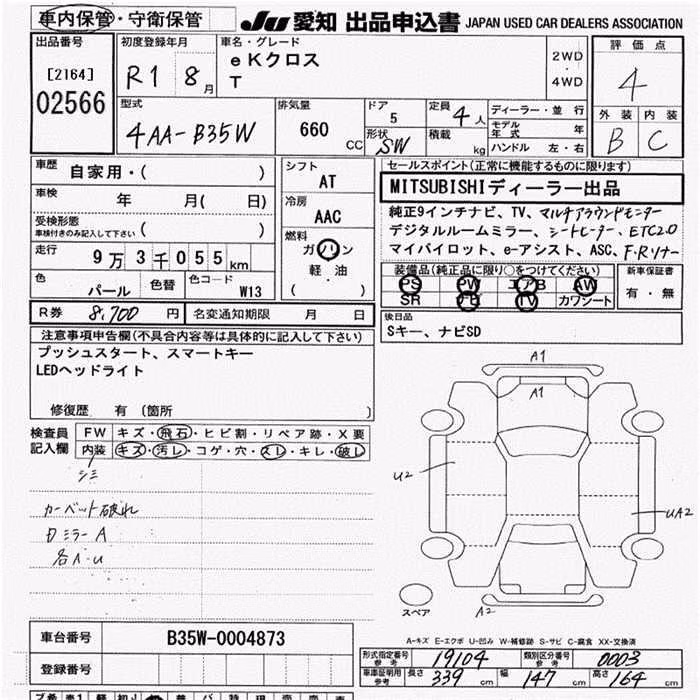 車内保管・守衛保管 JU 愛知 出品申込書 JAPAN USED CAR DEALERS ASSOCIATION
出品番号
[2164]
02566
初度登録年月
R1 8月
車名・グレード
eKクロス
T
2WD
・
4WD
評価点
4
外装 内装
B C
型式
4AA-B35W
排気量
660 CC
ドア
5
定員 4人
形状
SW
積載 kg
ディーラー・並行
モデル年式 年
ハンドル 左・右
車歴
自家用・( )
車検
年 月( 日)
受検形態
車検付きのみ記入して下さい ( )
走行
9万3千055km
色
パール
色替
色コード
W13
シフト
AT
冷房
AAC
燃料
ガソリン
軽・油
( )
セールスポイント(正常に機能するものに限ります)
MITSUBISHIディーラー出品
純正9インチナビ、TV、マルチアラウンドモニター
デジタルルームミラー、シートヒーター、ETC2.0
マイパイロット、e-アシスト、ASC、F・Rソナー
装備品(純正品に限り○をつけてください)
PS PW エアB AW
SR ナビ TV カワシート
新車保証書
有・無
R券 8,700円 名変通知期限 月 日
後日品
Sキー、ナビSD
注意事項申告欄(不具合内容等は具体的に記入して下さい)
プッシュスタート、スマートキー
LEDヘッドライト
修復歴 有 (箇所 )
検査員
記入欄
FW キズ・飛石・ヒビ割・リペア跡・X要
内装 キズ・汚レ・コゲ・穴・スレ・キレ・破レ
シミ
カーペット破れ
Dミラー A
各A・U
A1
A1
U2
UA2
A2
スペア
A-キズ E-エクボ U-凹み W-補修跡 S-サビ C-腐食 XX-交換済
車台番号 B35W-0004873
登録番号
形式指定番号
参考
19104
類別区分番号
参考
0003
車庫証明用
参考
長さ 339 cm 幅 147 cm 高さ 164 cm